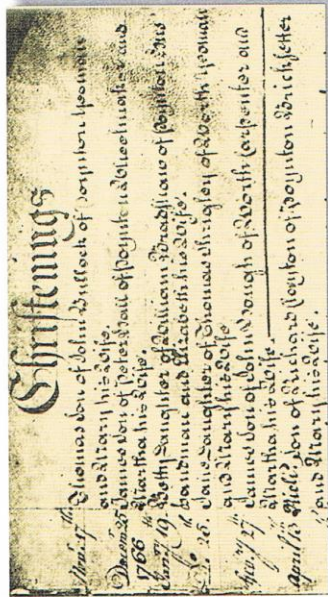 Christenings
17th Thomas Son of John Bulloch of Poynton Yeoman
and Mary his Wife.
Decem 25 James Son of Peter Hall of Poynton Wheelmaker and
Martha his Wife.
1766
19th Betty Daughter of William Bradshaw of Poynton Hus
bandman and Elizabeth his Wife.
Do 26 Jane Daughter of Thomas Shrigley of Worth Yeoman
and Mary his Wife.
27th James Son of John Hough of Worth Carpenter and
Martha his Wife.
April 13 Son of Richard Clayton of Poynton Bricksetter
and Mary his Wife.